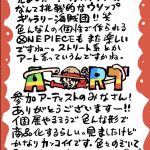 なんて挑戦的なウソップ
ギャラリー海賊団!!笑
色んな人の個性で作られる
ONE PIECEもまた楽しい
ですねー。ストリート系とか
アート系っていうんですかね。
ART
参加アーティストのみなさん!
ありがとうございますー!!
個展やるまで色んな形で
商品化するらしい。見ましたけど
かなりカッコイイです。